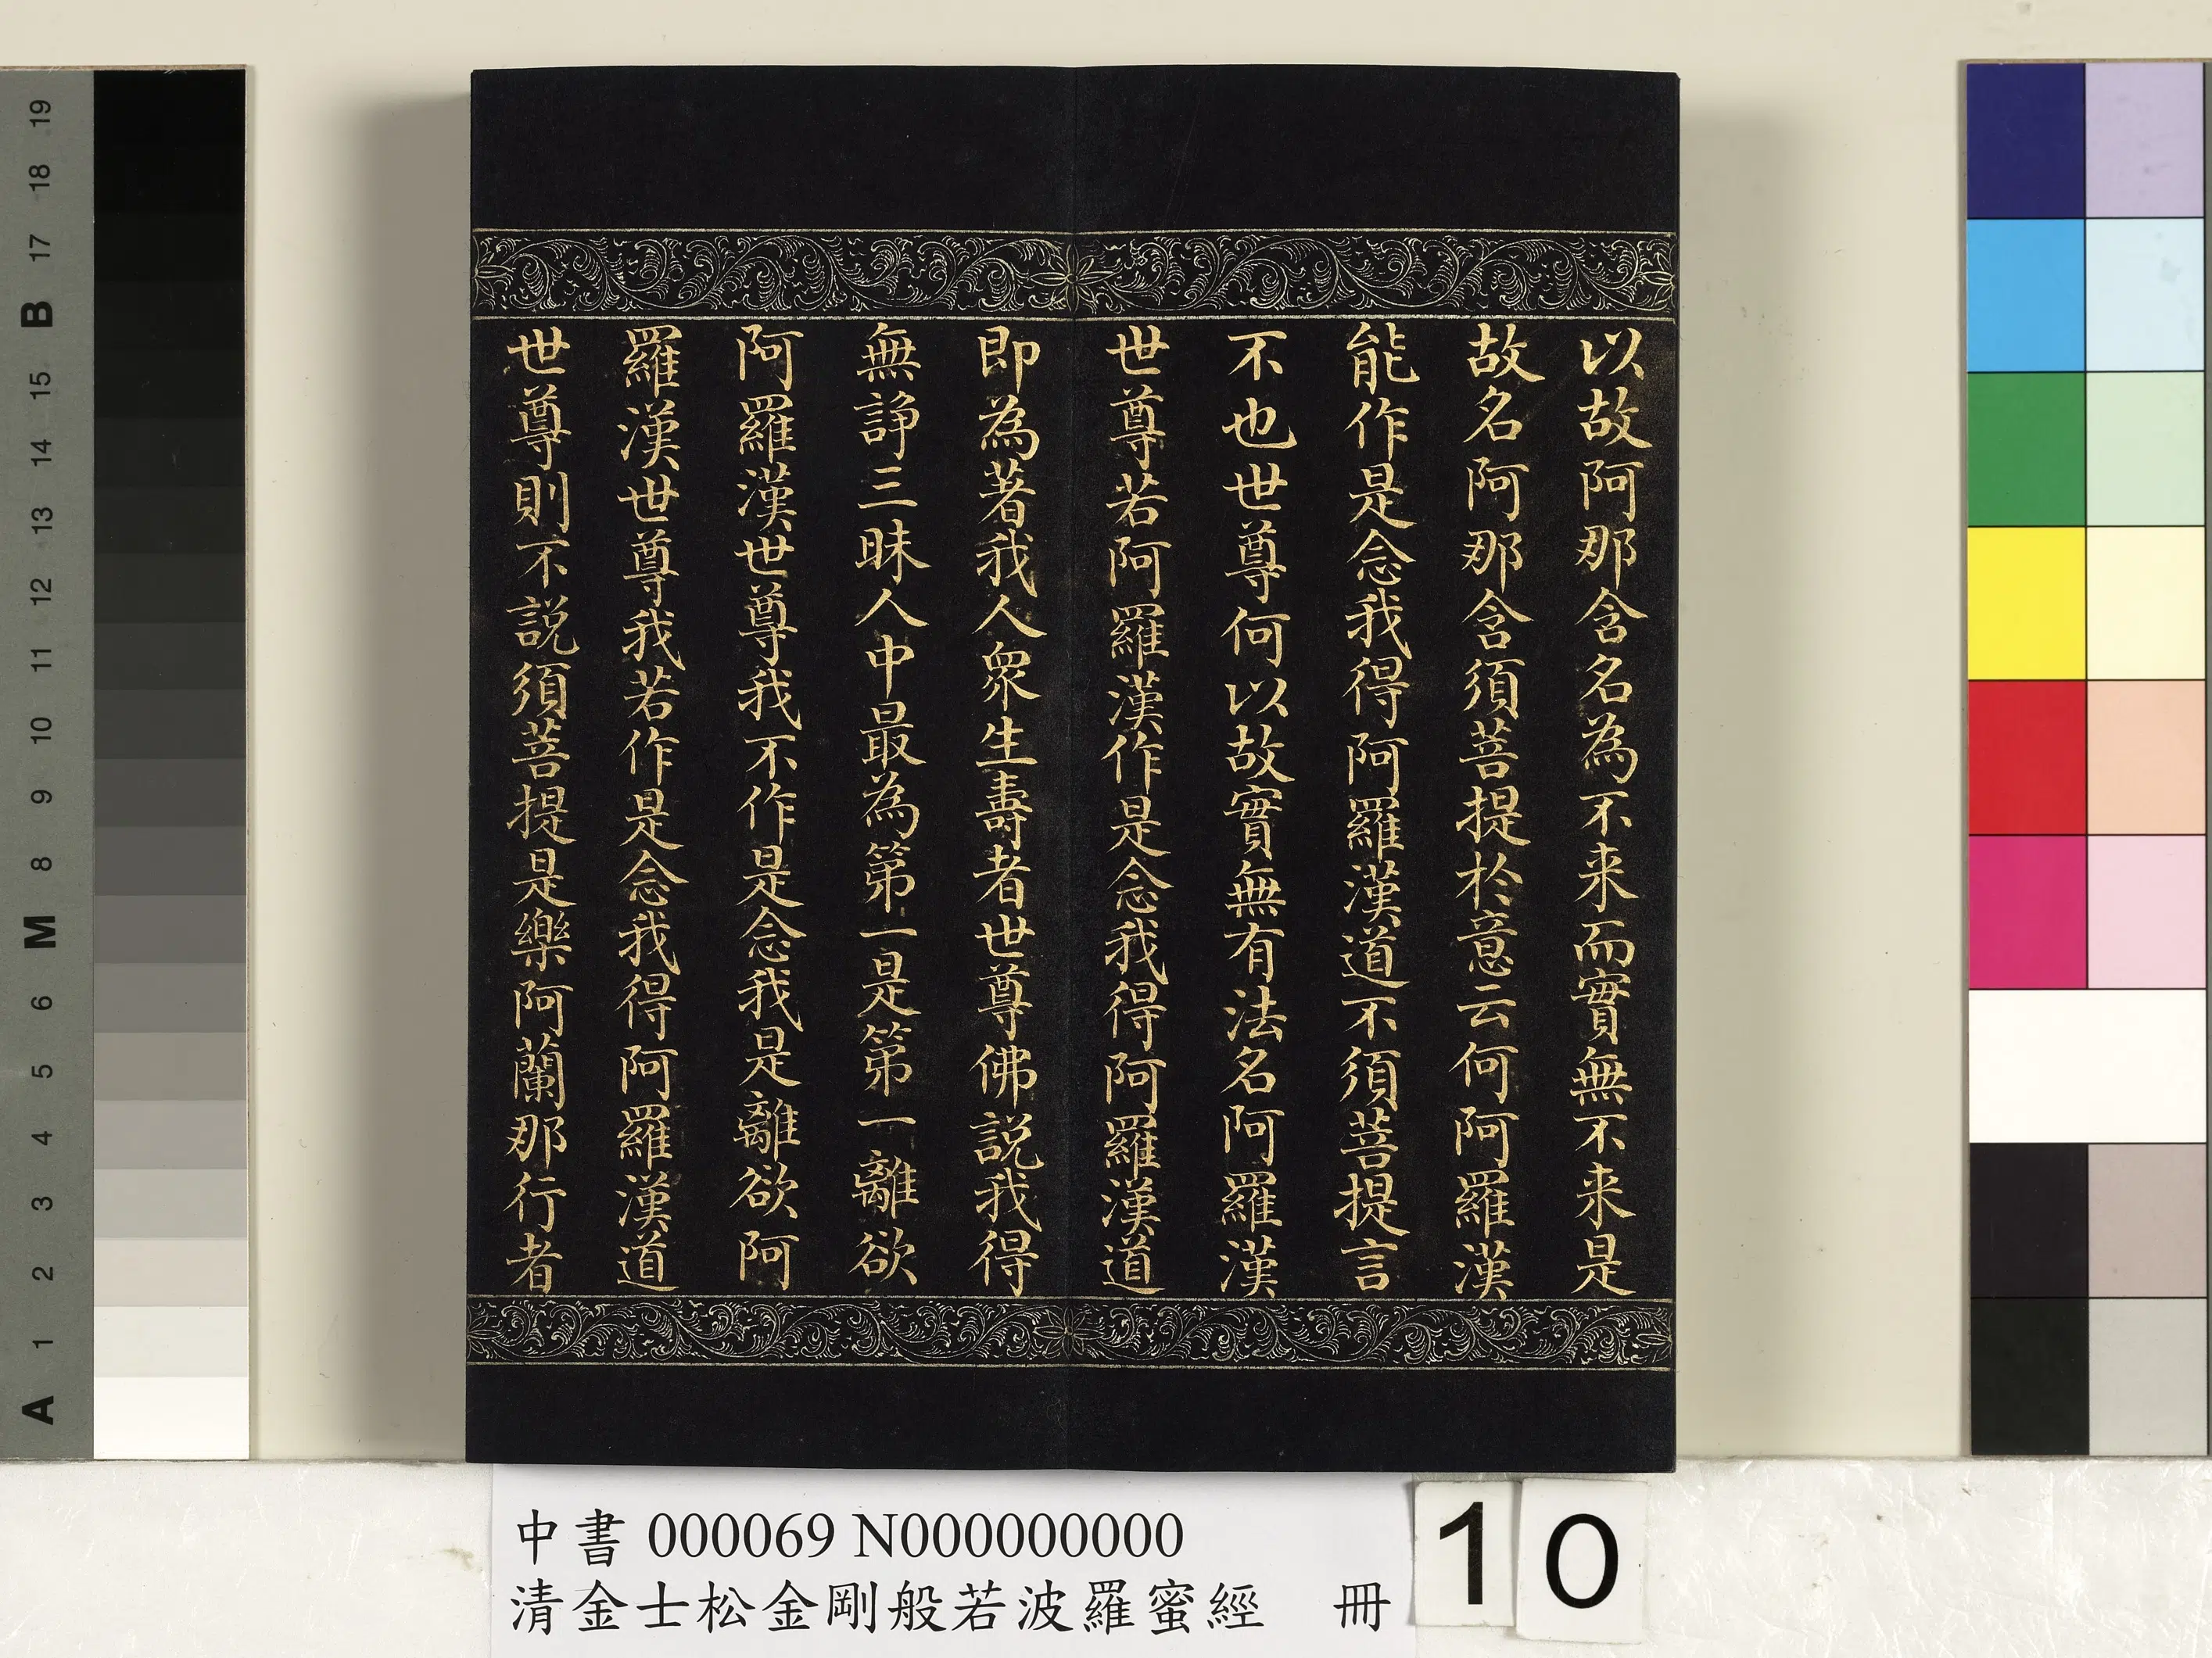 以故阿那含名為不来而實無不来是
故名阿那含須菩提於意云何阿羅漢
能作是念我得阿羅漢道不須菩提言
不也世尊何以故實無有法名阿羅漢
世尊若阿羅漢作是念我得阿羅漢道
即為著我人衆生壽者世尊佛説我得
無諍三昧人中最為第一是第一離欲
阿羅漢世尊我不作是念我是離欲阿
羅漢世尊我若作是念我得阿羅漢道
世尊則不説須菩提是樂阿蘭那行者
中書 000069 N000000000
清金士松金剛般若波羅蜜經 冊
10
19
18
17
B
15
14
13
12
11
10
9
8
M
6
5
4
3
2
1
A